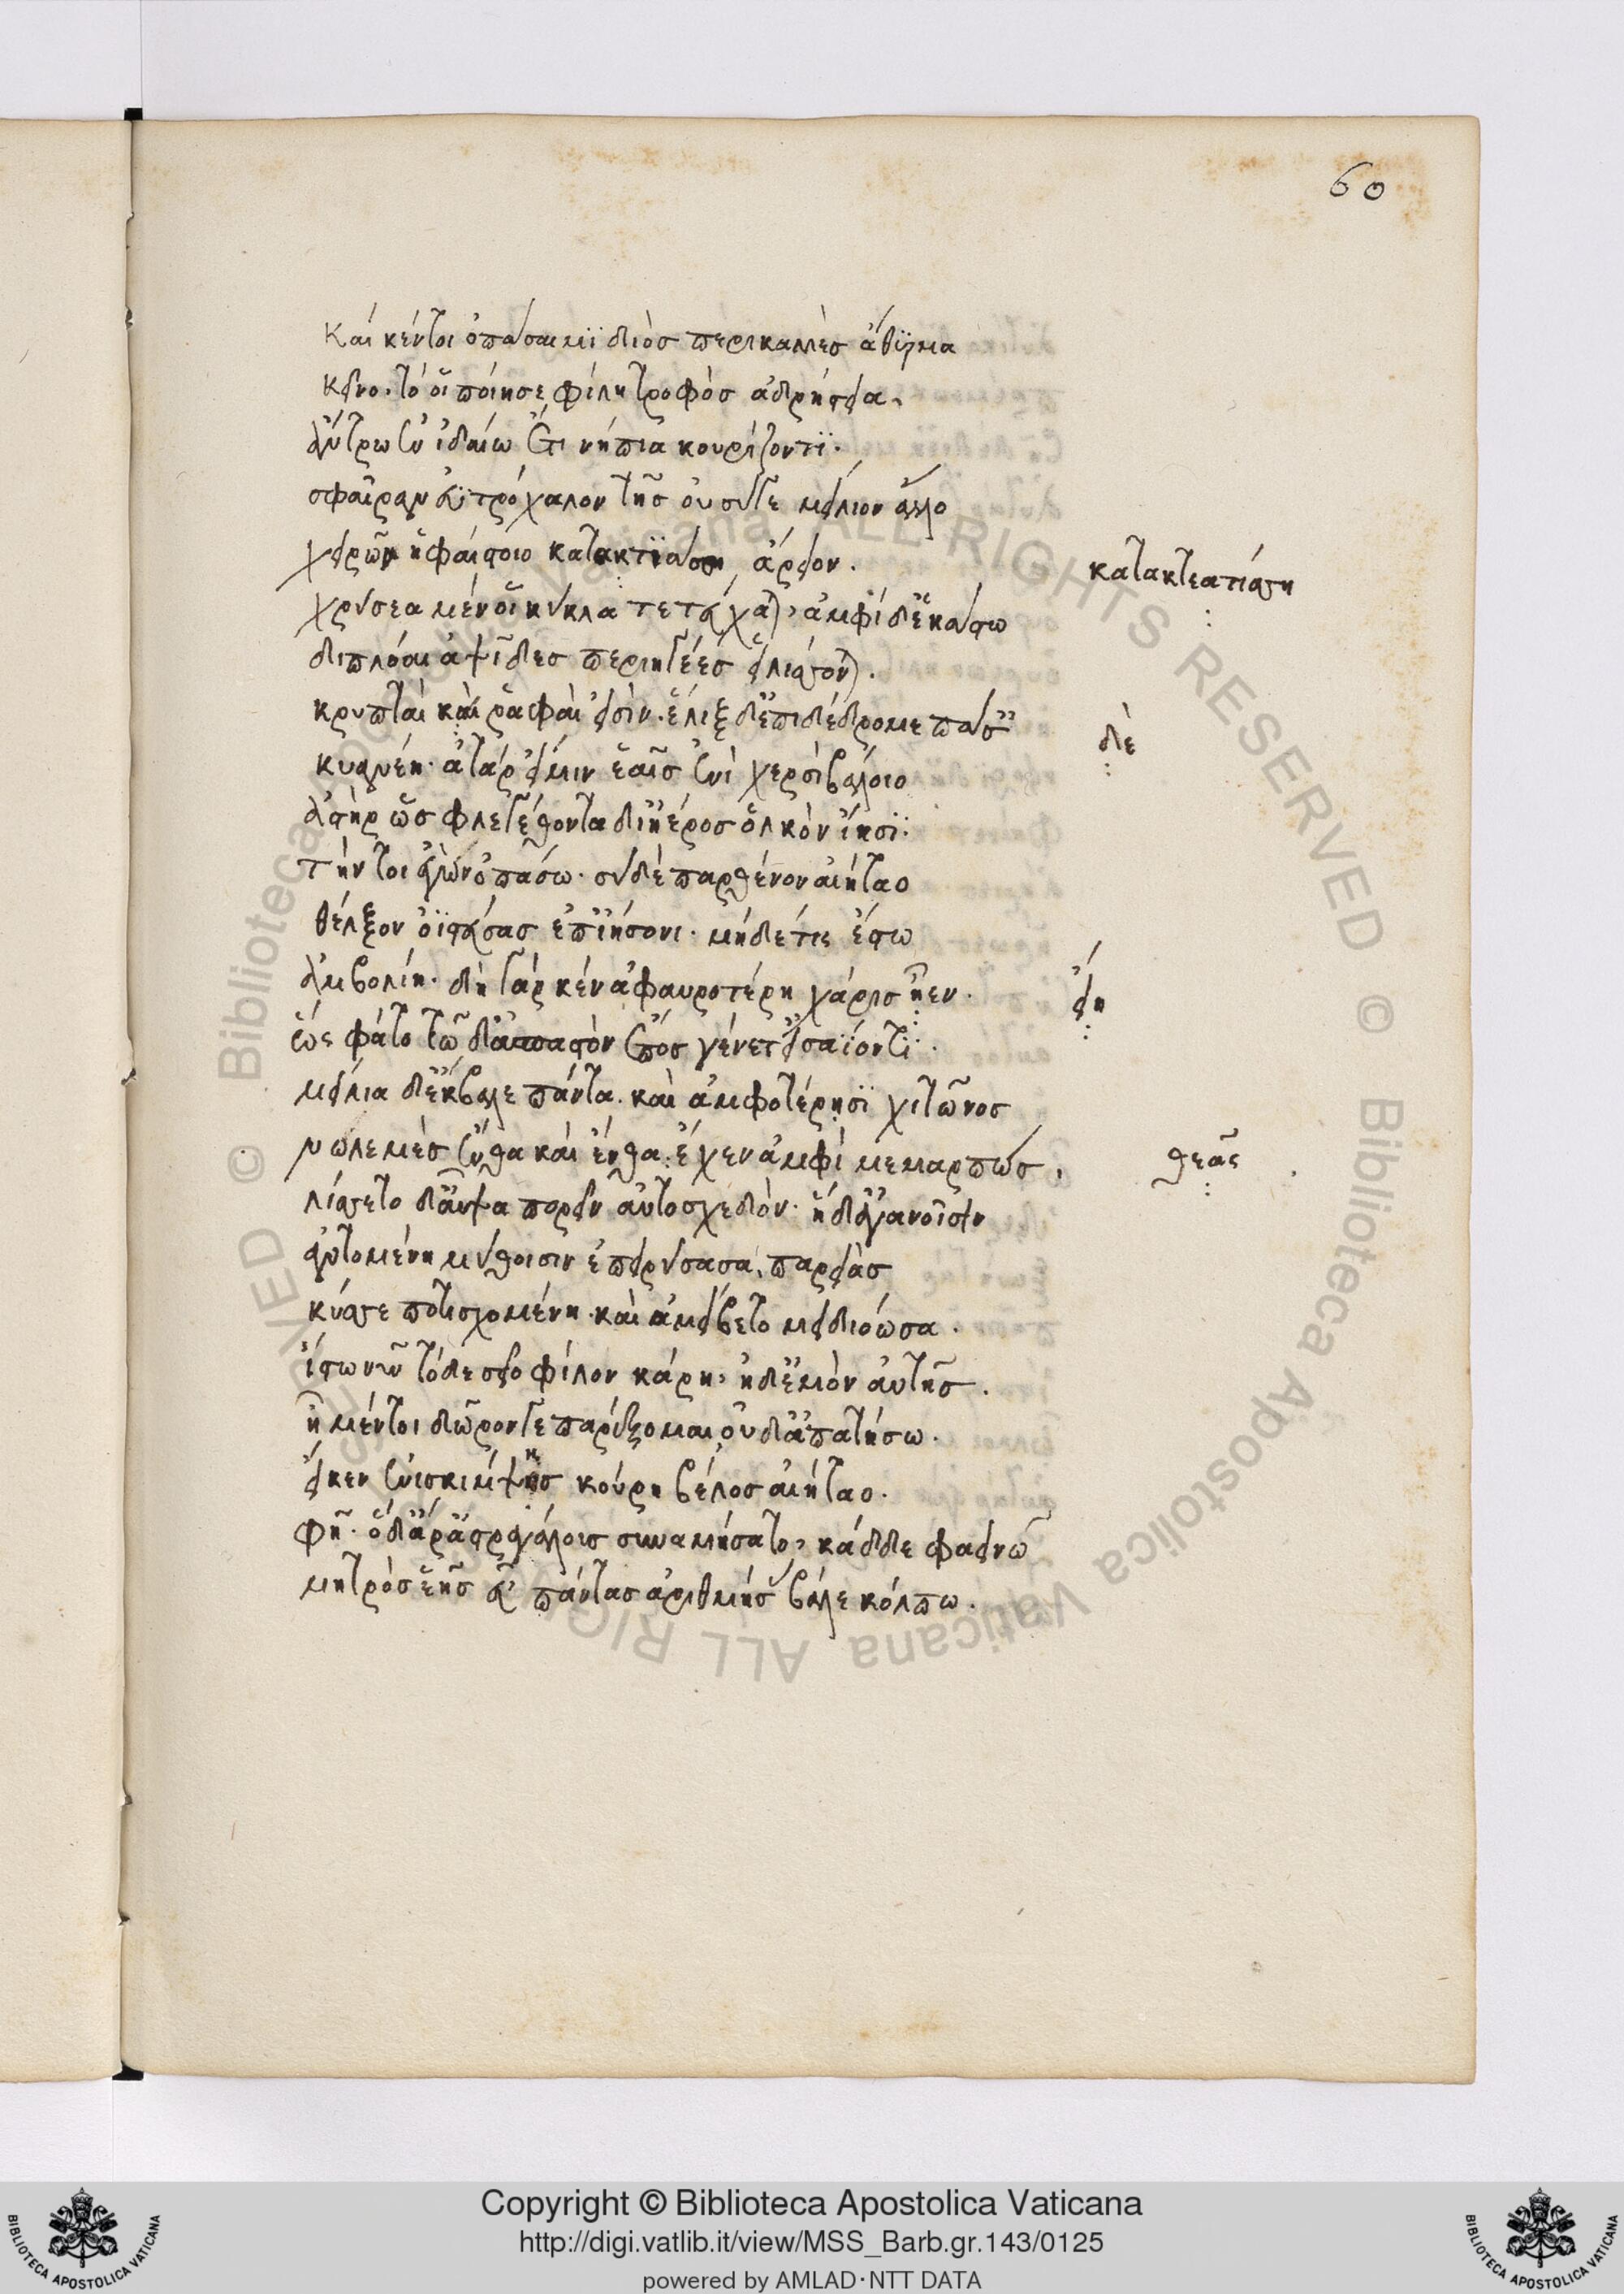 60
Καί κέν τοι ὀπάσαιμϊ διὸσ περικαλλὲσ ἄθϋρμα
κεῖνο. τό οἱ ποίησε φίλη τροφὸσ ἀδρήστεια.
ἄντρω ἐν ἰδαίω ἔτι νήπια κουρίζοντϊ.
σφαῖραν ἐϋτρόχαλον τῆσ οὐ σύγε μείλιον ἄλλο
χειρῶν ἡφαίστοιο κατακτϊάσση ἄρειον.
κατακτεατίσση
χρύσεα μέν οἱ κύκλα τετεύχαται, ἀμφὶ δ' ἑκάστω
διπλόαι ἀψῖδεσ περιηγέεσ εἱλίσσονται.
κρυπταὶ καὶ ῥαφαὶ εἰσὶν. ἕλιξ δ' ἐπιδέδρομε πάσαισ
δὲ
κυανέη. ἀτὰρ εἴ μιν ἑαῖσ ἐνὶ χερσὶ βάλοιο
ἀστὴρ ὣσ φλεγέθοντα δι' ἠέροσ ὁλκὸν ἵησϊ.
τήν τοι ἐγὼν ὀπάσω. σὺ δὲ παρθένον αἰήταο
θέλξον ὀϊστεύσασ ἐπ' ἰήσονι. μηδέ τισ ἔστω
ἀμβολίη. δὴ γάρ κεν ἀφαυροτέρη χάρισ ἦεν.
εἴη
ὣς φάτο τῶ δ' ἀσπαστὸν ἔποσ γένετ' εἰσαϊόντϊ.
μείλια δ' ἔκβαλε πάντα. καὶ ἀμφοτέρησϊ χιτῶνοσ
νωλεμὲσ ἔνθα καὶ ἔνθα. ἔχεν ἀμφὶ μεμαρπώσ.
θεᾶς
λίσσετο δ' αἶψα πορεῖν αὐτοσχεδὸν. ἡ δ' ἀγανοῖσιν
ἀντομένη μύθοισιν ἐπειρύσασα, παρειὰσ
κύσσε ποτισχομένη. καὶ ἀμείβετο μειδιόωσα.
ἴστω νῦν τόδε σεῖο φίλον κάρη, ἠδ' ἐμὸν αὐτῆσ.
ἦ μέν τοι δῶρόν γε παρέξομαι οὐδ' ἀπατήσω.
εἴ κεν ἐνισκίμψησ κούρη βέλοσ αἰήταο.
φῆ. ὁ δ' ἄρ' ἀστραγάλουσ συναμήσατο, κὰδ δὲ φαεινῶ
μητρὸσ ἑῆσ εὖ πάντασ ἀριθμήσασ βάλε κόλπω.
Copyright © Biblioteca Apostolica Vaticana
http://digi.vatlib.it/view/MSS_Barb.gr.143/0125
powered by AMLAD·NTT DATA
BIBLIOTECA APOSTOLICA VATICANA
BIBLIOTECA APOSTOLICA VATICANA
© Biblioteca Apostolica Vaticana ALL RIGHTS RESERVED © Biblioteca Apostolica Vaticana ALL RIGHTS RESERVED